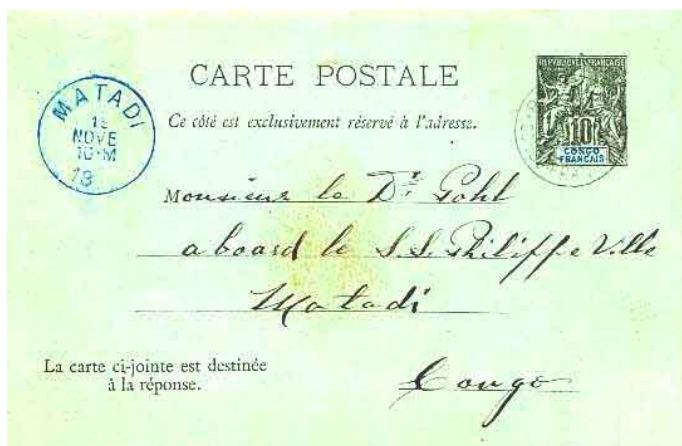 CARTE POSTALE
Ce côté est exclusivement réservé à l'adresse.
RÉPUBLIQUE FRANÇAISE
10
CONGO
FRANÇAIS
MATADI
15
NOVE
10-M
18
Monsieur le Dr. Pohl
a board le S.S. Philippe Ville
Matadi
Congo
La carte ci-jointe est destinée
à la réponse.